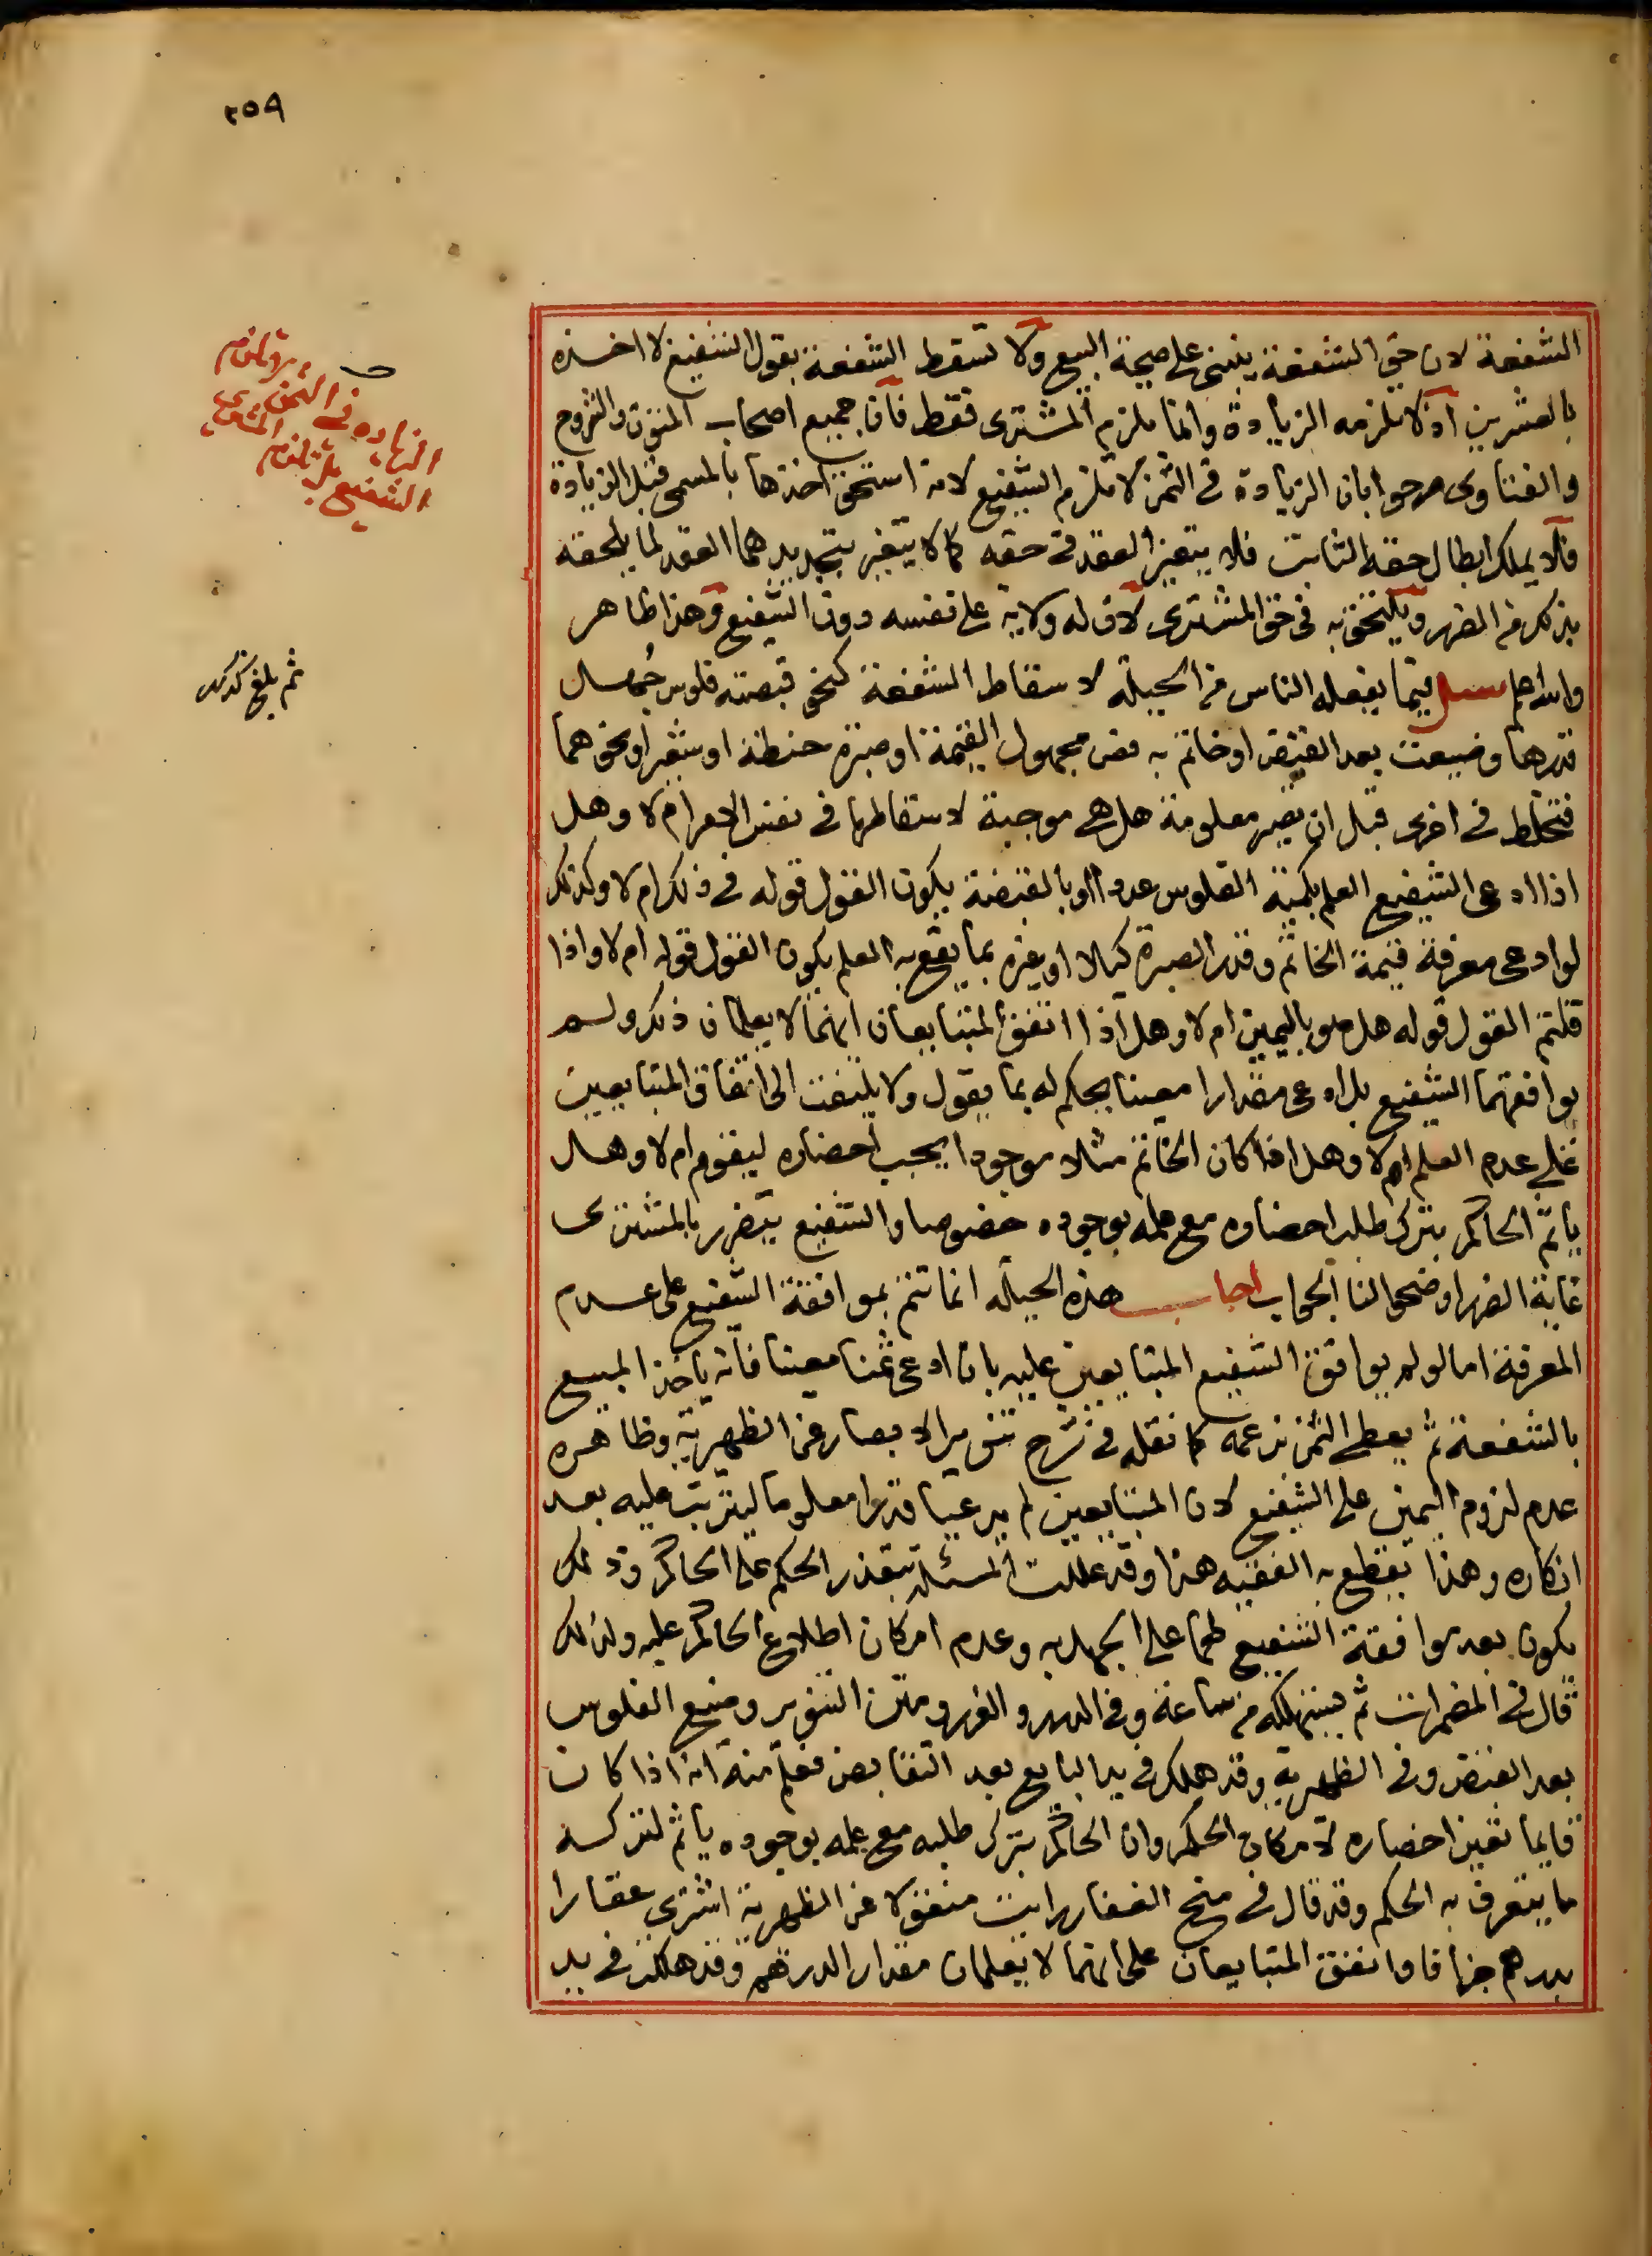 ٢٥٩
الشفعة لان حق الشفعة ينبنى على صحة البيع ولا تسقط الشفعة بقول الشفيع لا اخذه
بالعشرين اذ لا تلزمه الزيادة وانما تلزم المشترى فقط فان جميع اصحاب المتون والشروح
والفتاوى صرحوا بان الزيادة فى الثمن لا تلزم الشفيع لانه استحق اخذها بالمسمى قبل الزيادة
فلا يملك ابطال حقه الثابت فلا يتغير العقد فى حقه كما لا يتغير بتجديدهما العقد لما يلحقه
بذلك من الضرر ويلتحق به فى حق المشترى لان له ولاية على نفسه دون الشفيع وهذا ظاهر
والله اعلم سئل فيما يفعله الناس من الحيلة لاسقاط الشفعة كنحو قبضته فلوس جُهل
قدرها وضيعت بعد القبض او خاتم به فص مجهول القيمة او صبرة حنطة او شعير او نحوهما
فتخلط فى اخرى قبل ان تصير معلومة هل هى موجبة لاسقاطها فى نفس الامر ام لا وهل
اذا ادعى الشفيع العلم بكمية الفلوس عددا او بالقبضة يكون القول قوله فى ذلك ام لا وكذلك
لو ادعى معرفة قيمة الخاتم وقدر الصبرة كيلا او غيره بما يقع به العلم يكون القول قوله ام لا واذا
قلتم القول قوله هل هو باليمين ام لا وهل اذا اتفق المتبايعان انهما لا يعلمان ذلك ولم
يوافقهما الشفيع بل ادعى مقدارا معينا يحكم له بما يقول ولا يلتفت الى اتفاق المتبايعين
على عدم العلم ام لا وهل اذا كان الخاتم مثلا موجودا يجب احضاره ليقوم ام لا وهل
ياثم الحاكم بترك طلب احضاره مع علمه بوجوده خصوصا والشفيع يتضرر بالمشترى
غاية الضرر اوضحوا لنا الجواب اجاب هذه الحيلة انما تتم بموافقة الشفيع على عدم
المعرفة اما لو لم يوافق الشفيع المتبايعين عليه بان ادعى ثمنا معينا فانه ياخذ المبيع
بالشفعة ثم يعطى الثمن بزعمه كما نقله فى شرح تنوير الابصار عن الظهيرية وظاهره
عدم لزوم اليمين على الشفيع لان المتبايعين لم يدعيا قدرا معلوما ليترتب عليه بعد
انكاره وهذا يقطع به الفقيه هذا وقد عللت المسئلة بتعذر الحكم على الحاكم وذلك
يكون بعد موافقة الشفيع لهما على الجهل به وعدم امكان اطلاع الحاكم عليه ولذلك
قال فى المضمرات ثم يستهلكه من ساعة وفى الدرر والغرر ومتن التنوير وضيع الفلوس
بعد القبض وفى الظهيرية وقد هلك فى يد البايع بعد التقابض فعلم منه انه اذا كان
قايما تعين احضاره لامكان الحكم وان الحاكم بترك طلبه مع علمه بوجوده ياثم لتركه
ما يتعرف به الحكم وقد قال فى منح الغفار رايت منقولا عن الظهيرية اشترى عقارا
بدرهم جزافا واتفق المتبايعان على انهما لا يعلمان مقدار الدرهم وقد هلك فى يد
الزيادة فى الثمن
الشفيع بل تلزم المشترى
ثم بلغ كذلك